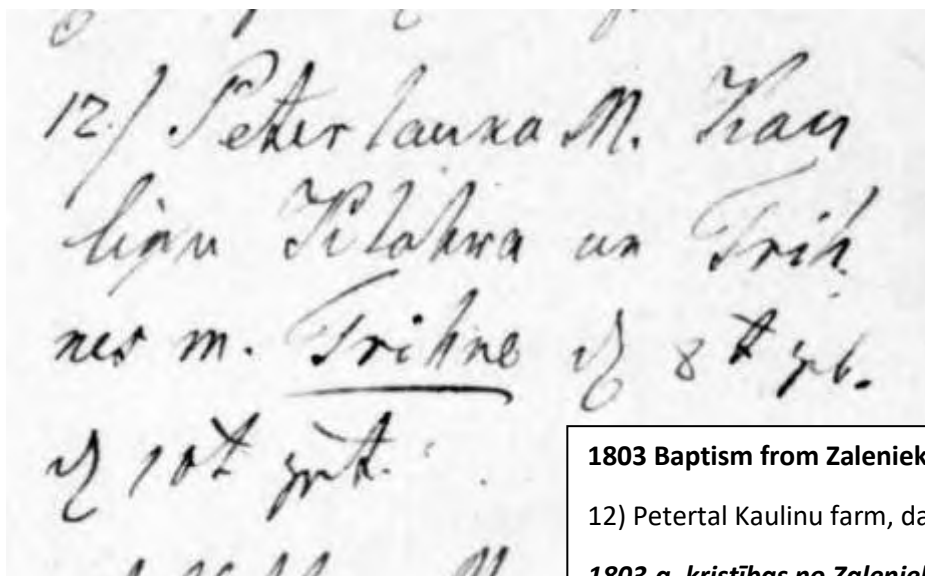 12.) Peterlauxa M. Kau
liņu Klahwa un Trih
nes m. Trihne d 8t geb.
d 10t get.
1803 Baptism from Zaleniek
12) Petertal Kaulinu farm, da
1803 g. kristības no Zaleniek